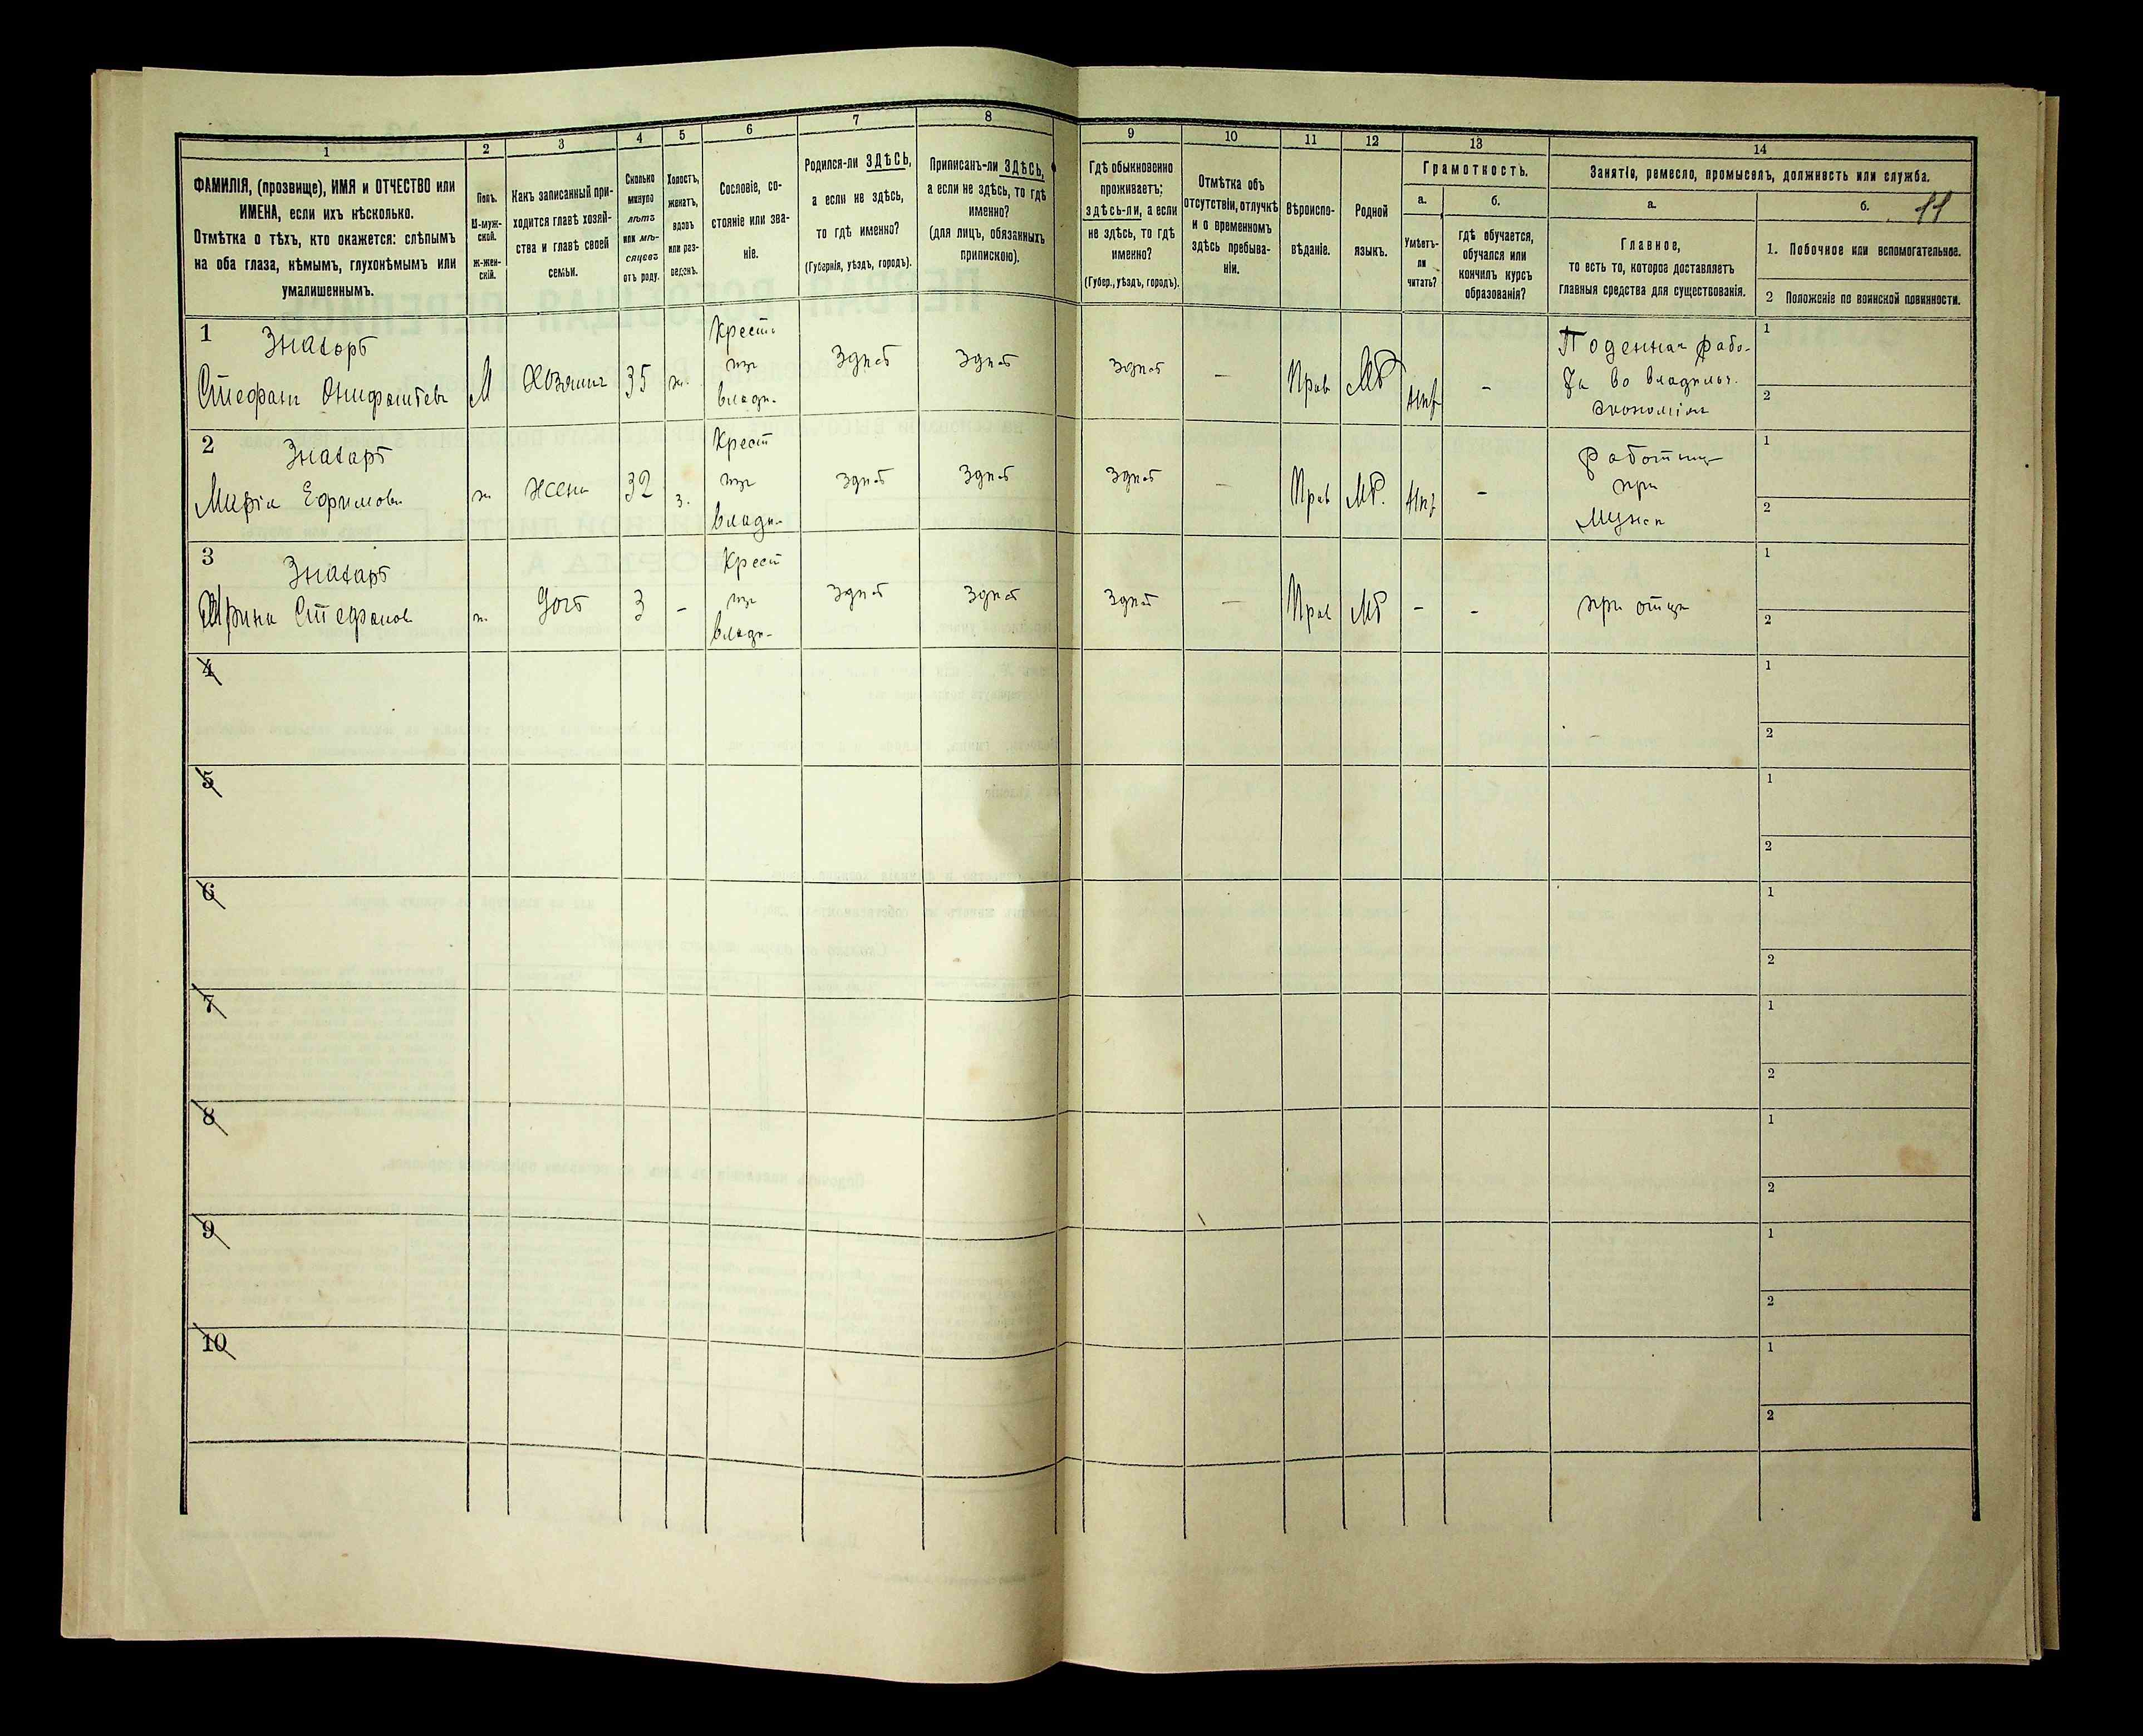 1
2
3
4
5
6
7
8
ФАМИЛІЯ, (прозвище), ИМЯ и ОТЧЕСТВО или
ИМЕНА, если ихъ нѣсколько.
Отмѣтка о тѣхъ, кто окажется: слѣпымъ
на оба глаза, нѣмымъ, глухонѣмымъ или
умалишеннымъ.
Полъ.
М-муж-
ской.
ж-жен-
скій.
Какъ записанный при-
ходится главѣ хозяй-
ства и главѣ своей
семьи.
Сколько
минуло
лѣтъ
или мѣ-
сяцевъ
отъ роду.
Холостъ,
женатъ,
вдовъ
или раз-
веденъ.
Сословіе, со-
стояніе или зва-
ніе.
Родился-ли ЗДѢСЬ,
а если не здѣсь,
то гдѣ именно?
(Губернія, уѣздъ, городъ).
Приписанъ-ли ЗДѢСЬ,
а если не здѣсь, то гдѣ
именно?
(для лицъ, обязанныхъ
припискою).
9
10
11
12
13
14
Гдѣ обыкновенно
проживаетъ;
здѣсь-ли, а если
не здѣсь, то гдѣ
именно?
(Губер., уѣздъ, городъ).
Отмѣтка объ
отсутствіи, отлучкѣ
и о временномъ
здѣсь пребыва-
ніи.
Вѣроиспо-
вѣданіе.
Родной
языкъ.
Грамотность.
а.
Умѣетъ-
ли
читать?
б.
гдѣ обучается,
обучался или
кончилъ курсъ
образованія?
Занятіе, ремесло, промыселъ, должность или служба.
а.
Главное,
то есть то, которое доставляетъ
главныя средства для существованія.
б.
11
1. Побочное или вспомогательное.
2 Положеніе по воинской повинности.
1
Знахарь
Стефанъ
М
Хозяинъ
35
ж.
Крест.
изъ
владѣ-
здѣсь
здѣсь
здѣсь
—
Прав
МР
нѣт
-
Поденная рабо-
та во владѣльч.
экономіи
1
2
2
Знахарь
Марія Ефимова
ж
жена
32
з.
Крест
изъ
владѣ-
здѣсь
здѣсь
здѣсь
—
Прав
МР.
нѣт
-
работница
при
мужѣ
1
2
3
Знахарь
Ирина Стефанов
ж.
дочь
3
-
Крест
изъ
владѣ-
здѣсь
здѣсь
здѣсь
—
Прав
МР
-
-
при отцѣ
1
2
4
1
2
5
1
2
6
1
2
7
1
2
8
1
2
9
1
2
10
1
2